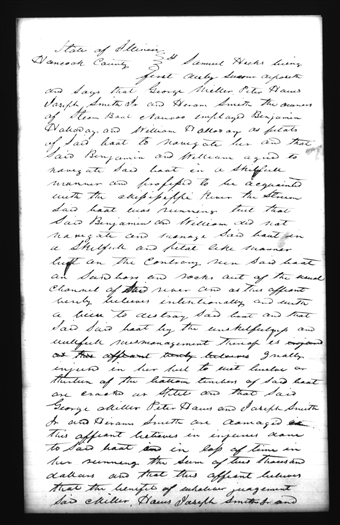 State of Illinois
Hancock County ss Samuel Hicks being
first duly sworn deposeth
and says that George Miller Peter Haws
Joseph Smith Jr and Hiram Smith the owners
of Steam Boat Nauvoo employed Benjamin
Holladay and William Holladay as pilots
of said boat to navigate her and that
said Benjamin and William agreed to
navigate said boat in a skilfull
manner and professed to be acquainted
with the Mississippi River the stream
said boat was running but that
said Benjamin and William did not
navigate and manage said boat in
a skilfull and pilot like manner
but on the contrary run said boat
on sand bars and rocks out of the usual
channel of said river and as this affiant
verily believes intentionally and with
a view to destroy said boat and that
said said boat by the unskilfulness and
willfull mismanagement thereof is injured
as this affiant verily believes greatly
injured in her hull to wit twelve or
thirteen of the bottom timbers of said boat
are cracked or split and that said
George Miller Peter Haws and Joseph Smith
Jr and Hiram Smith are damaged as
this affiant believes in injuries done
to said boat and in loss of time in
her running the sum of two thousand
dollars and that this affiant believes
that the benefit of whatever judgment
said Miller, Haws Joseph Smith Jr and